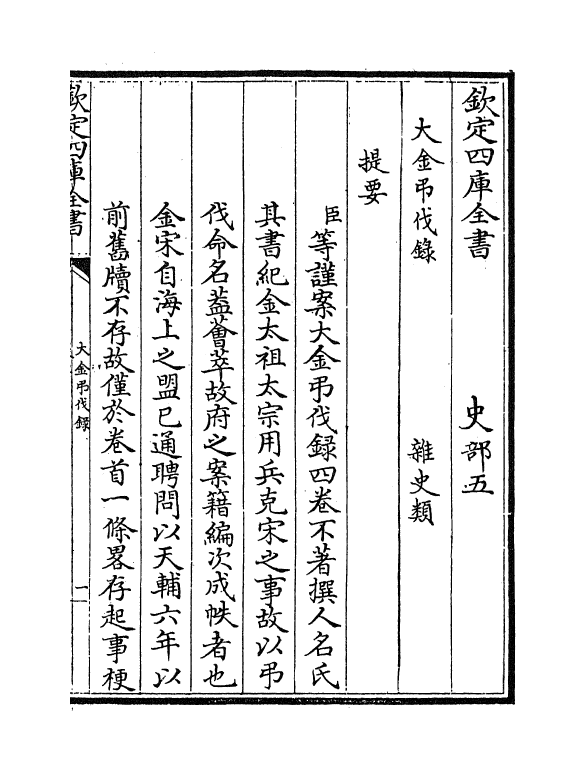 欽定四庫全書　史部五
大金弔伐錄　雜史類
提要
臣等謹案大金弔伐録四卷不著撰人名氏
其書紀金太祖太宗用兵克宋之事故以弔
伐命名葢薈萃故府之案籍編次成帙者也
金宋自海上之盟已通聘問以天輔六年以
前舊牘不存故僅於卷首一條畧存起事梗
欽定四庫全書
大金弔伐録
一